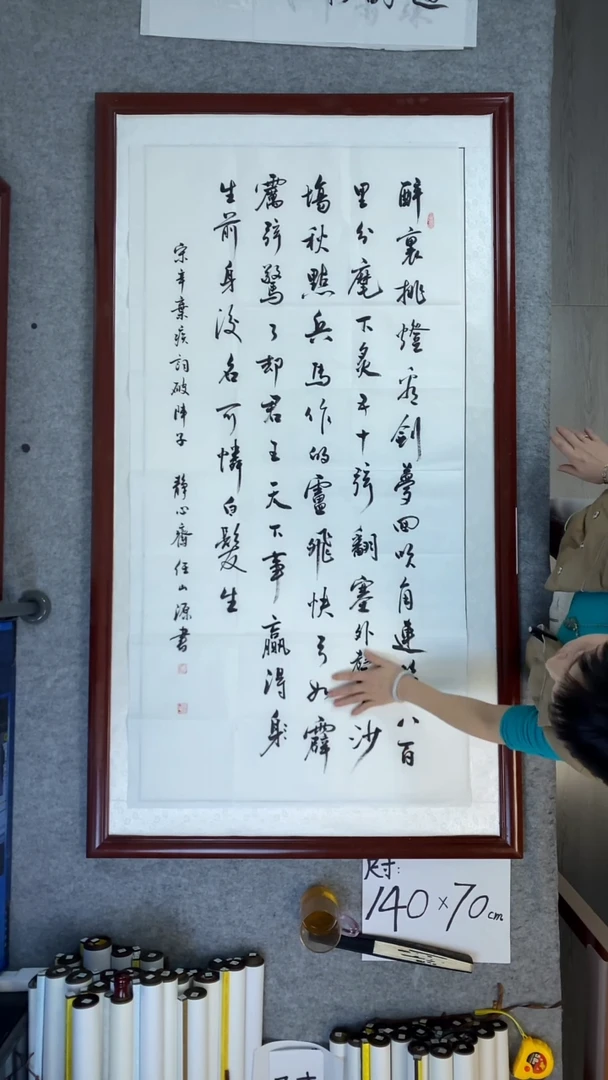 醉裏挑燈看劍夢回吹角連營八百
里分麾下炙五十弦翻塞外聲沙
場秋點兵馬作的盧飛快弓如霹
靂弦驚了却君王天下事贏得身
生前身後名可憐白髮生
宋辛棄疾詞破陣子 靜心齋任山源書
尺寸:
140×70cm